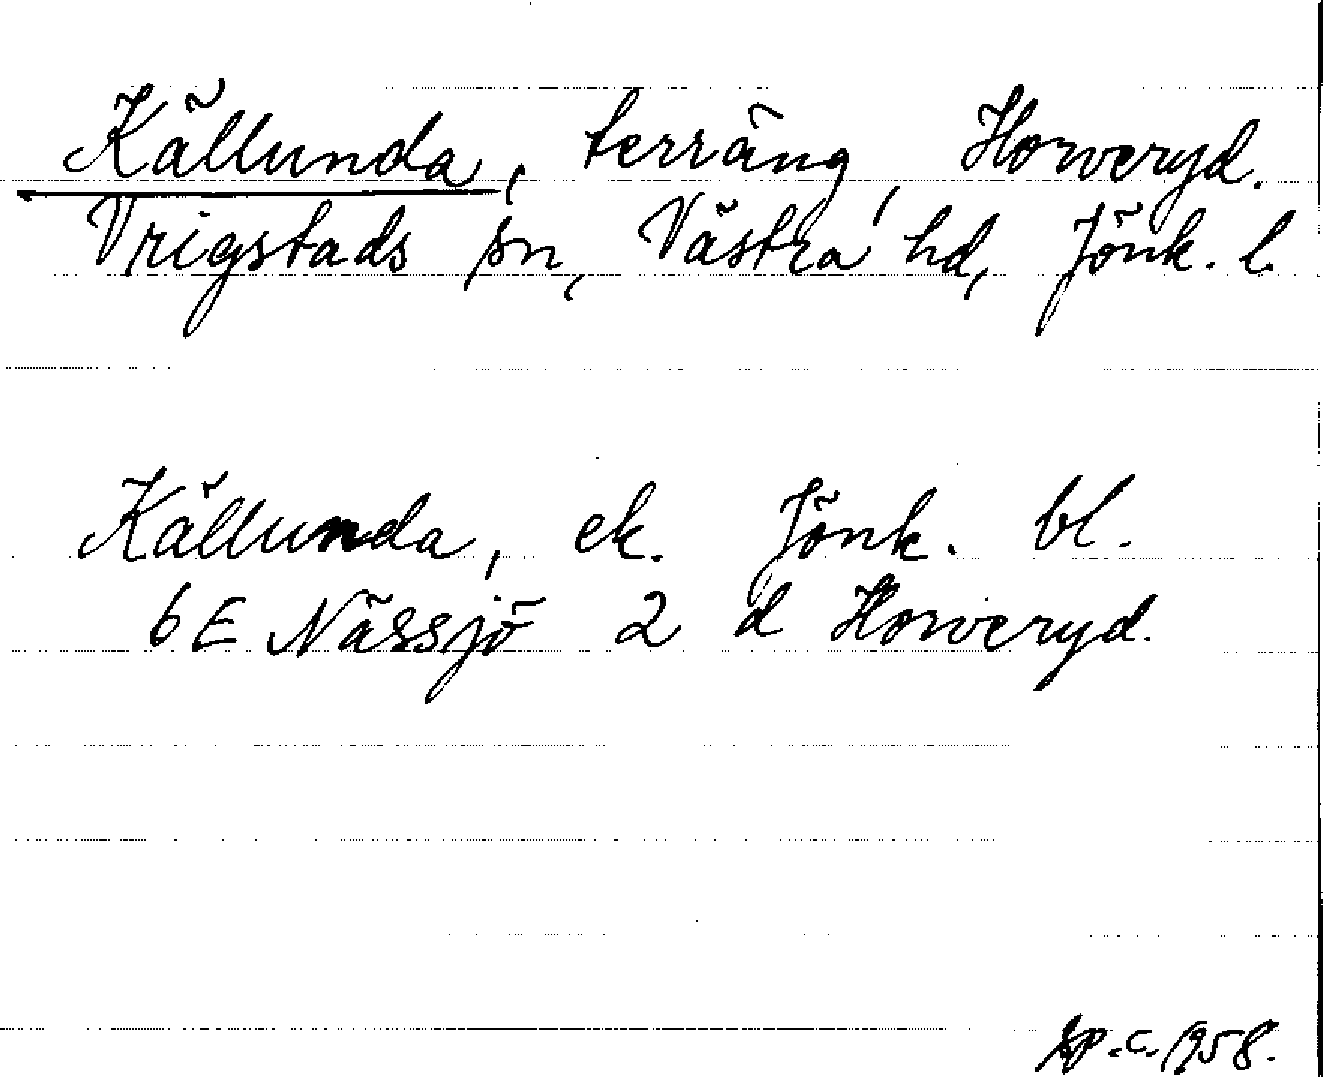 Källunda, terräng, Horveryd.
Vrigstads sn, Västra hd, Jönk. l.
Källunda, ek. Jönk. bl.
6 E Nässjö 2 d Horveryd.
c. 1958.